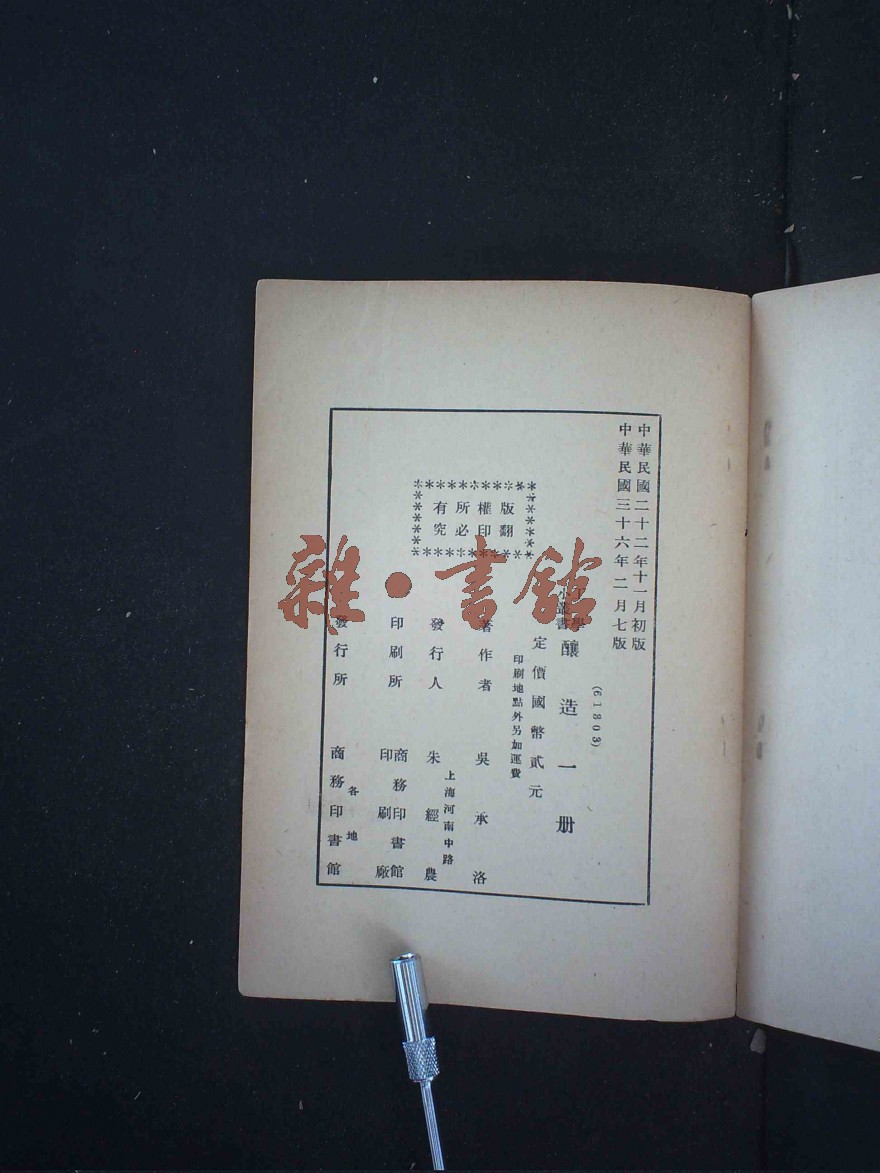 中華民國二十二年十一月初版
中華民國三十六年二月七版
(61803)
工學
小叢書
釀造一册
定價國幣貳元
印刷地點外另加運費
版權所有
翻印必究
著作者 吳承洛
上海河南中路
發行人 朱經農
印刷所 商務印書館
印刷廠
各地
發行所 商務印書館
雜·書館